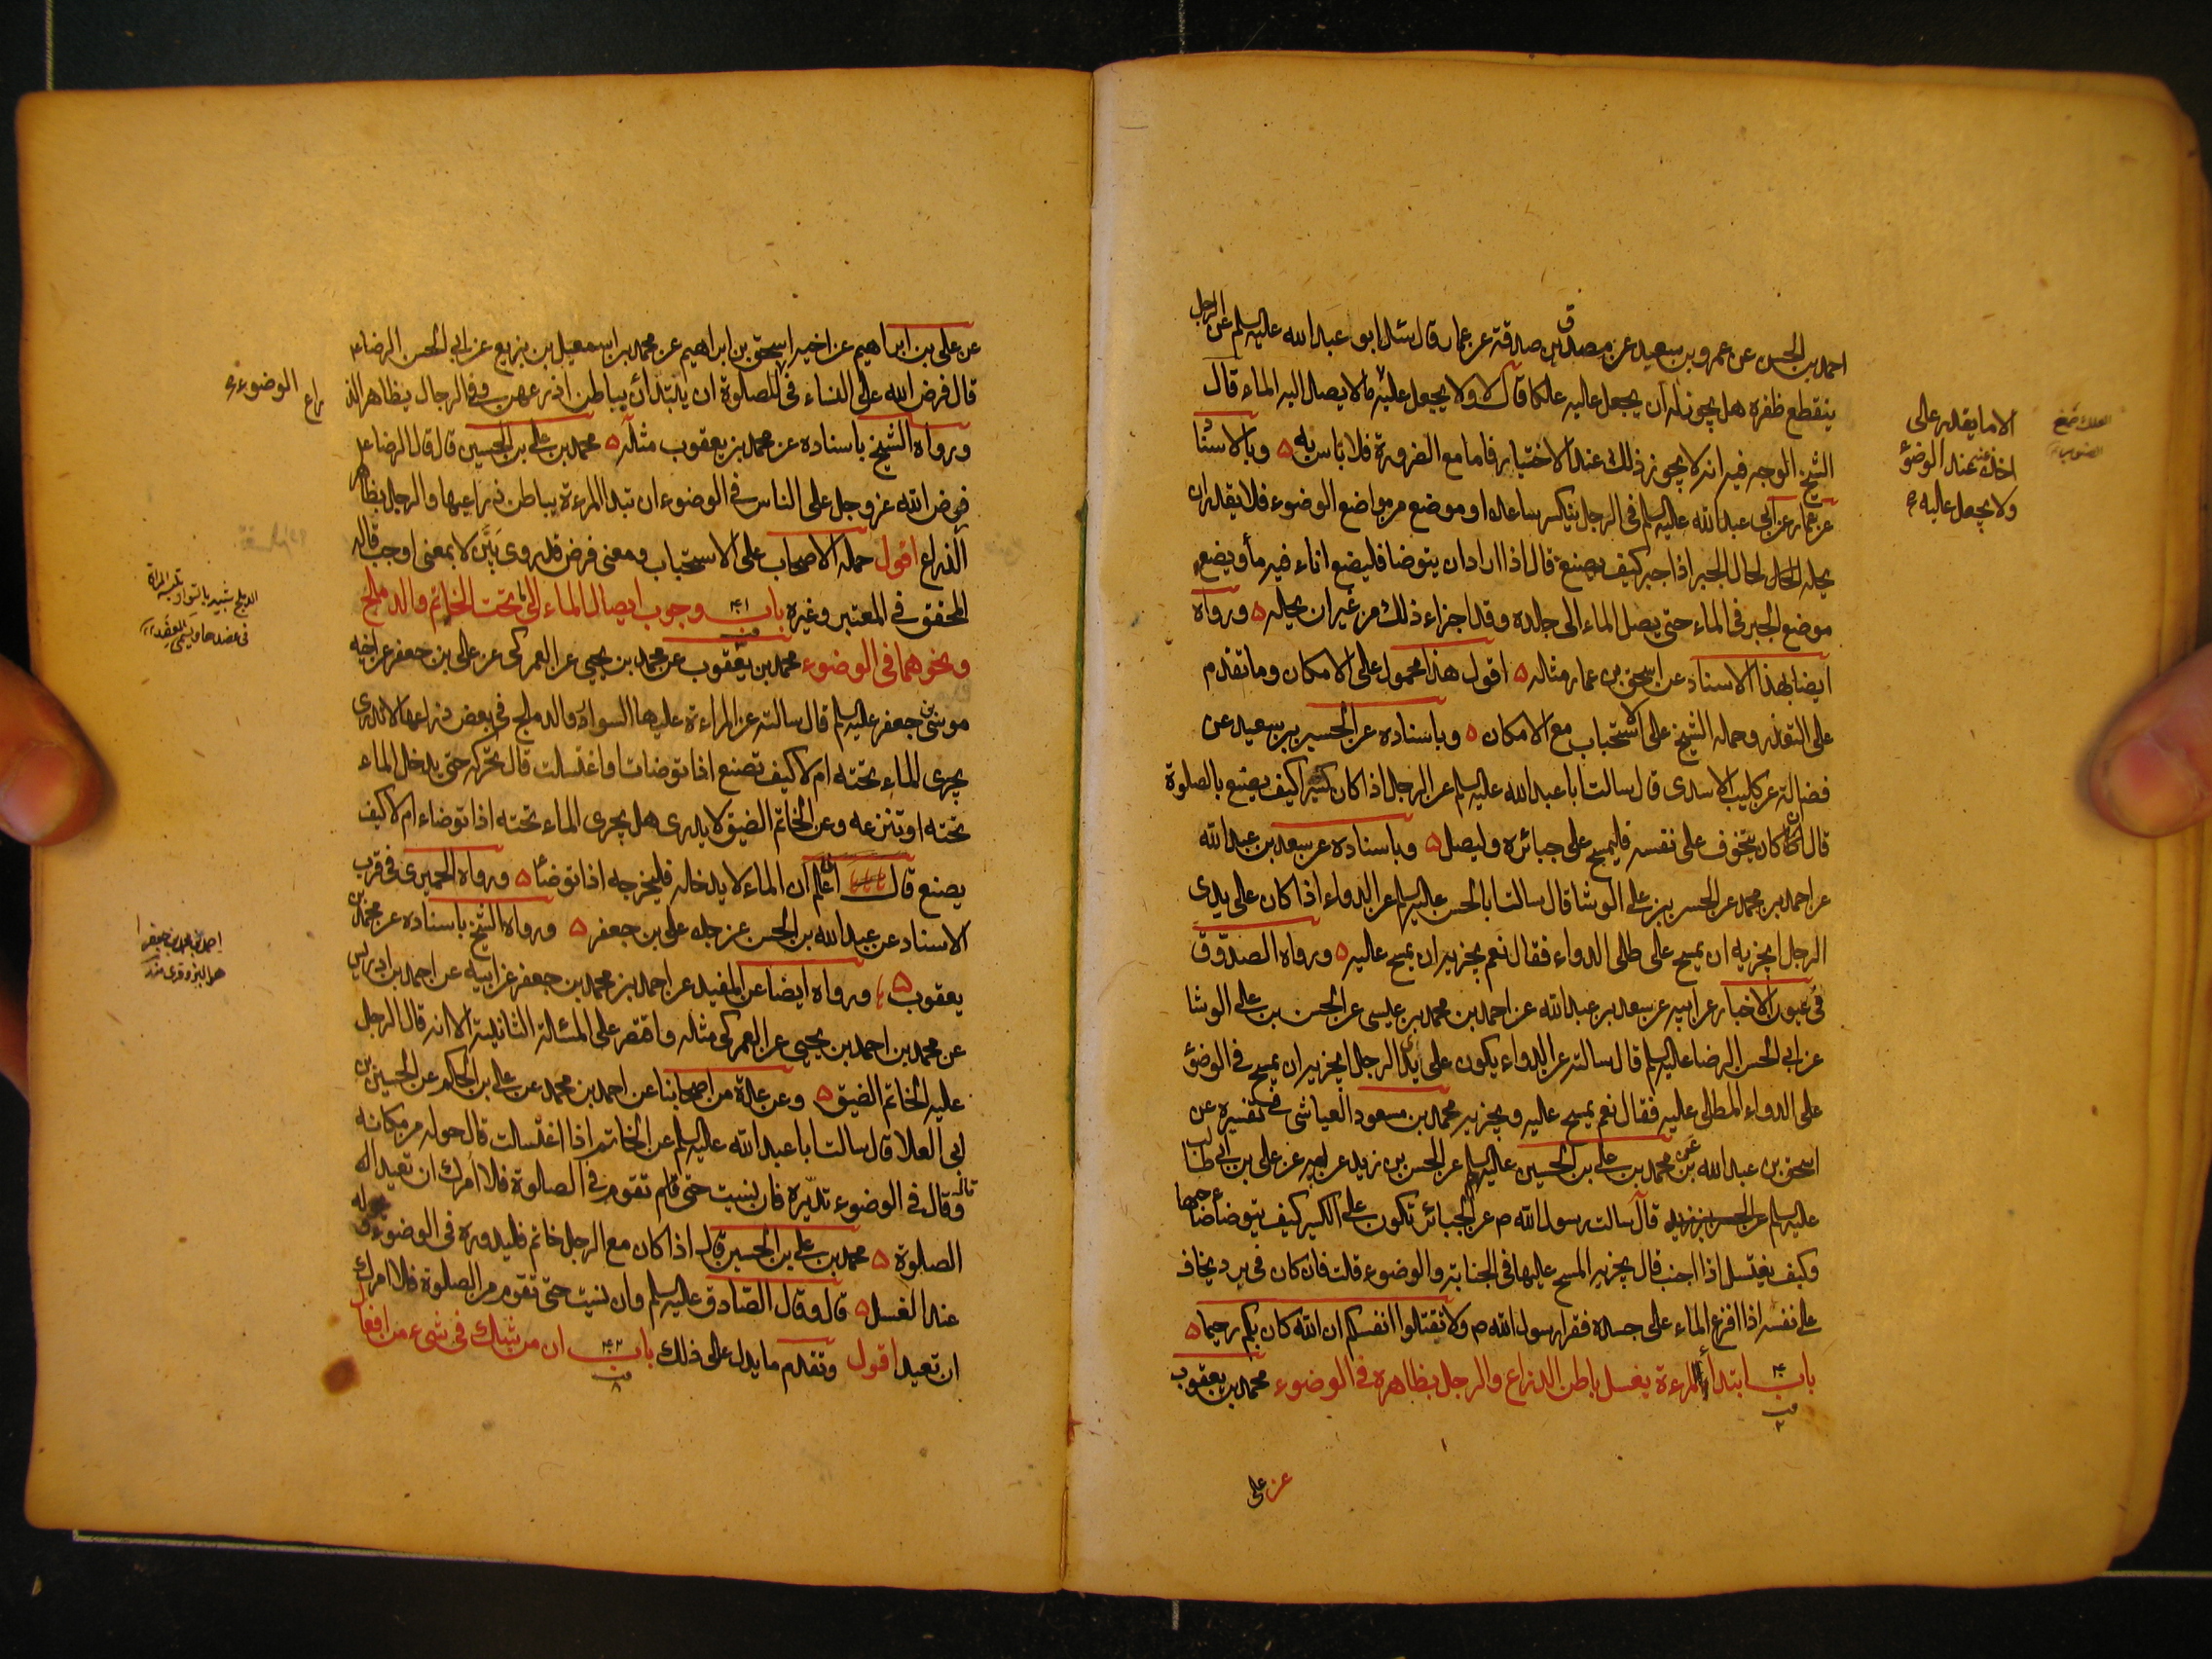 احمد بن الحسن عن عمرو بن سعيد عن مصدق بن صدقة عن عمار قال سئل ابو عبد الله عليه السلم عن الرجل
ينقطع ظفره هل يجوز له ان يجعل عليه علكا قال لا ولا يجعل عليه ما لا يصل اليه الماء قال
الشيخ الوجه فيه انه لا يجوز ذلك عند الاختيار فاما مع الضرورة فلا باس به ۵ وبالاسنا
عن عمار عن ابى عبد الله عليه السلم فى الرجل ينكسر ساعده او موضع من مواضع الوضوء فلا يقدر ان
يحله لحال الجبر اذا جبر كيف يصنع قال اذا اراد ان يتوضا فليضع اناء فيه ماء ويضع
موضع الجبر فى الماء حتى يصل الماء الى جلده وقد اجزاءه ذلك من غير ان يحله ۵ ورواه
ايضا بهذا الاسناد عن اسحق بن عمار مثله ۵ اقول هذا محمول على الامكان وما تقدم
على التعذر وحمله الشيخ على الاستحباب مع الامكان ۵ وباسناده عن الحسين بن سعيد عن
فضالة عن كليب الاسدى قال سالت ابا عبد الله عليه السلم عن الرجل اذا كان كسيرا كيف يصنع بالصلوة
قال ان كان يتخوف على نفسه فليمسح على جبائره وليصل ۵ وباسناده عن سعد بن عبد الله
عن احمد بن محمد عن الحسن بن على الوشا قال سالت ابا الحسن عليه السلم عن الدواء اذا كان على يدى
الرجل ايجزيه ان يمسح على طلى الدواء فقال نعم يجزيه ان يمسح عليه ۵ ورواه الصدوق
فى عيون الاخبار عن ابيه عن سعد بن عبد الله عن احمد بن محمد بن عيسى عن الحسن بن على الوشا
عن ابى الحسن الرضا عليه السلم قال سالته عن الدواء يكون على يد الرجل ايجزيه ان يمسح فى الوضؤ
على الدواء المطلى عليه فقال نعم يمسح عليه ويجزيه محمد بن مسعود العياشى فى تفسيره عن
اسحق بن عبد الله بن محمد بن على بن الحسين عليهم السلم عن الحسن بن زيد عن ابيه عن على بن ابى طالب
عليه السلم قال سالت رسول الله ص عن الجبائر تكون على الكسير كيف يتوضأ صاحبها
وكيف يغتسل اذا اجنب قال يجزيه المسح عليها فى الجنابة والوضوء قلت فان كان فى برد يخاف
على نفسه اذا افرغ الماء على جسده فقرا رسول الله ص ولا تقتلوا انفسكم ان الله كان بكم رحيما ۵
باب ۴۰ ابتداء المرءة بغسل باطن الذراع والرجل بظاهره فى الوضوء محمد بن يعقوب
عن على
الا ما يقدر على
اخذه عنه عند الوضؤ
ولا يجعل عليه
عن على بن ابراهيم عن اخيه اسحق بن ابراهيم عن محمد بن اسمعيل بن بزيع عن ابى الحسن الرضاء
قال فرض الله على النساء فى الصلوة ان يبتدأن بباطن اذرعهن وفى الرجال بظاهر الذ
راع
الوضوء
ورواه الشيخ باسناده عن محمد بن يعقوب مثله ۵ محمد بن على بن الحسين قال قال الرضا ع
فرض الله عز وجل على الناس فى الوضوء ان تبدا المرءة بباطن ذراعيها والرجل بظاهر
الذراع اقول حمله الاصحاب على الاستحباب ومعنى فرض قدر وبيّن لا بمعنى اوجب قاله
المحقق فى المعتبر وغيره باب ۴۱ وجوب ايصال الماء الى ما تحت الخاتم والدملج
ونحوهما فى الوضوء محمد بن يعقوب عن محمد بن يحيى عن العمركى عن على بن جعفر عن اخيه
موسى بن جعفر عليه السلم قال سالته عن المراءة عليها السوار والدملج فى بعض ذراعها لا تدرى
يجرى الماء تحته ام لا كيف تصنع اذا توضات او اغتسلت قال تحركه حتى يدخل الماء
تحته او تنزعه وعن الخاتم الضيق لا يدرى هل يجرى الماء تحته اذا توضاء ام لا كيف
يصنع قال ان علم ان الماء لا يدخله فليخرجه اذا توضا ۵ ورواه الحميرى فى قرب
الاسناد عن عبد الله بن الحسن عن جده على بن جعفر ۵ ورواه الشيخ باسناده عن محمد بن
يعقوب ۵ ورواه ايضا عن المفيد عن احمد بن محمد بن جعفر عن ابيه عن احمد بن ادريس
عن محمد بن احمد بن يحيى عن العمركى مثله واقتصر على المسئلة الثانية الا انه قال الرجل
عليه الخاتم الضيق ۵ وعن عدة من اصحابنا عن احمد بن محمد عن على بن الحكم عن الحسين بن
ابى العلا قال سالت ابا عبد الله عليه السلم عن الخاتم اذا اغتسلت قال حوله من مكانه
وقال فى الوضوء تديره فان نسيت حتى تقوم فى الصلوة فلا آمرك ان تعيد
الصلوة ۵ محمد بن على بن الحسين قال اذا كان مع الرجل خاتم فليدوره فى الوضوء ويحوله
عند الغسل ۵ قال وقال الصادق عليه السلم وان نسيت حتى تقوم من الصلوة فلا امرك
ان تعيد اقول وتقدم ما يدل على ذلك باب ۴۲ ان من شك فى شىء من افعال